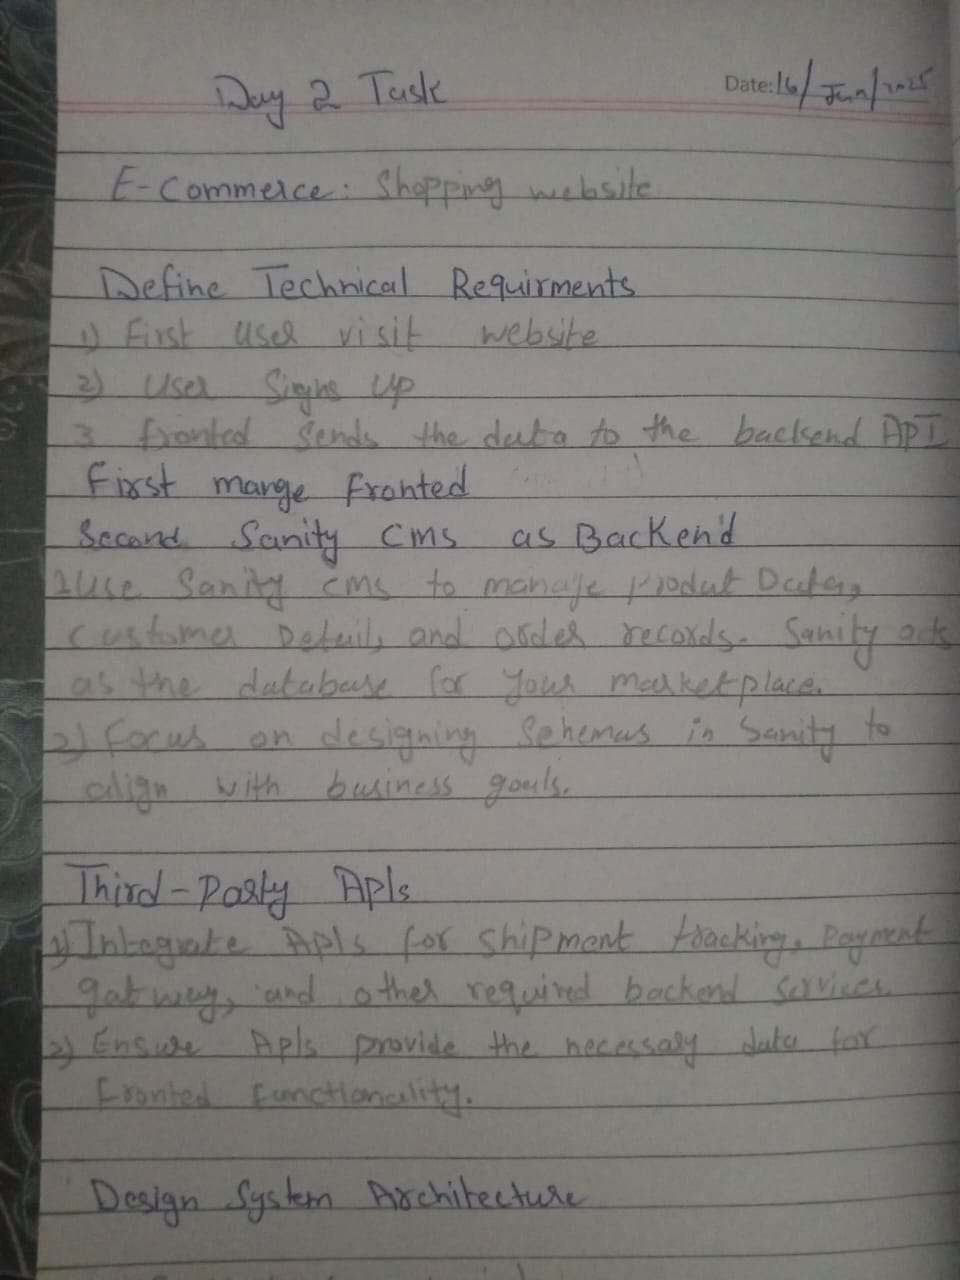 Day 2 Task
Date: 16/Jan/2025
E-Commerce: Shopping website
Define Technical Requirments
1) First user visit website
2) User Signs Up
3 fronted Sends the data to the backend API
First mange Fronted
Second Sanity CMS as Backend
1 Use Sanity cms to manage product Data,
Customer Details and order records. Sanity acts
as the database for your marketplace.
2) Focus on designing Schemas in Sanity to
align with business goals.
Third-Party APIs
1) Integrate APIs for shipment tracking, Payment
gatway, and other required backend services.
2) Ensure APIs provide the necessary data for
fronted functionality.
Design System Architecture